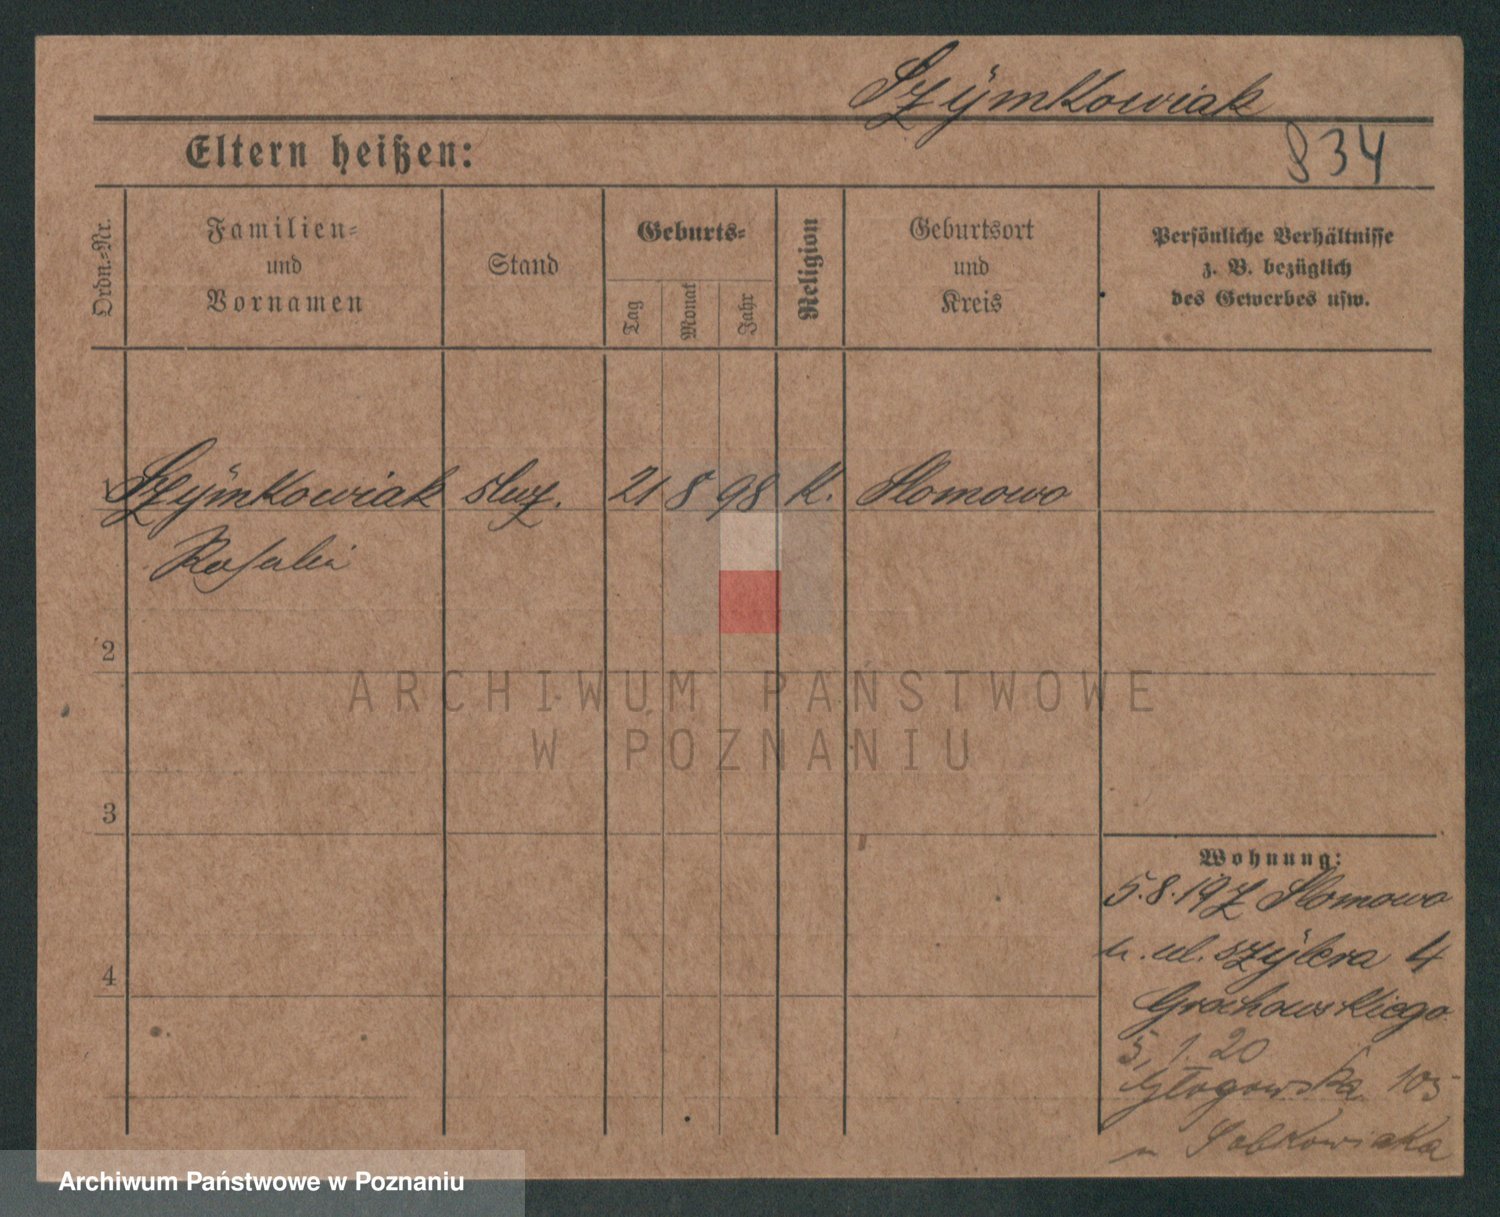 Szymkowiak
834
Eltern heißen:
Ordn.-Nr.
Familien-
und
Vornamen
Stand
Geburts-
Tag
Monat
Jahr
Religion
Geburtsort
und
Kreis
Persönliche Verhältnisse
z. B. bezüglich
des Gewerbes usw.
Szymkowiak służ. 21 8 98 K. Slomowo
Rosalie
2
ARCHIWUM PAŃSTWOWE
W POZNANIU
3
Wohnung:
5.8.19 z Slomowo
u. ul. Szylera 4
4
Grochowskiego
5, 1. 20
Głogowska 105
u Sobkowiaka
Archiwum Państwowe w Poznaniu